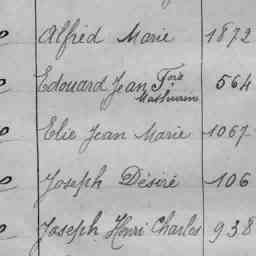 Alfred Marie 1872
Edouard Jean Fois 564
Mathurin
Elie Jean Marie 1067
Joseph Désiré 106
Joseph Henri Charles 938